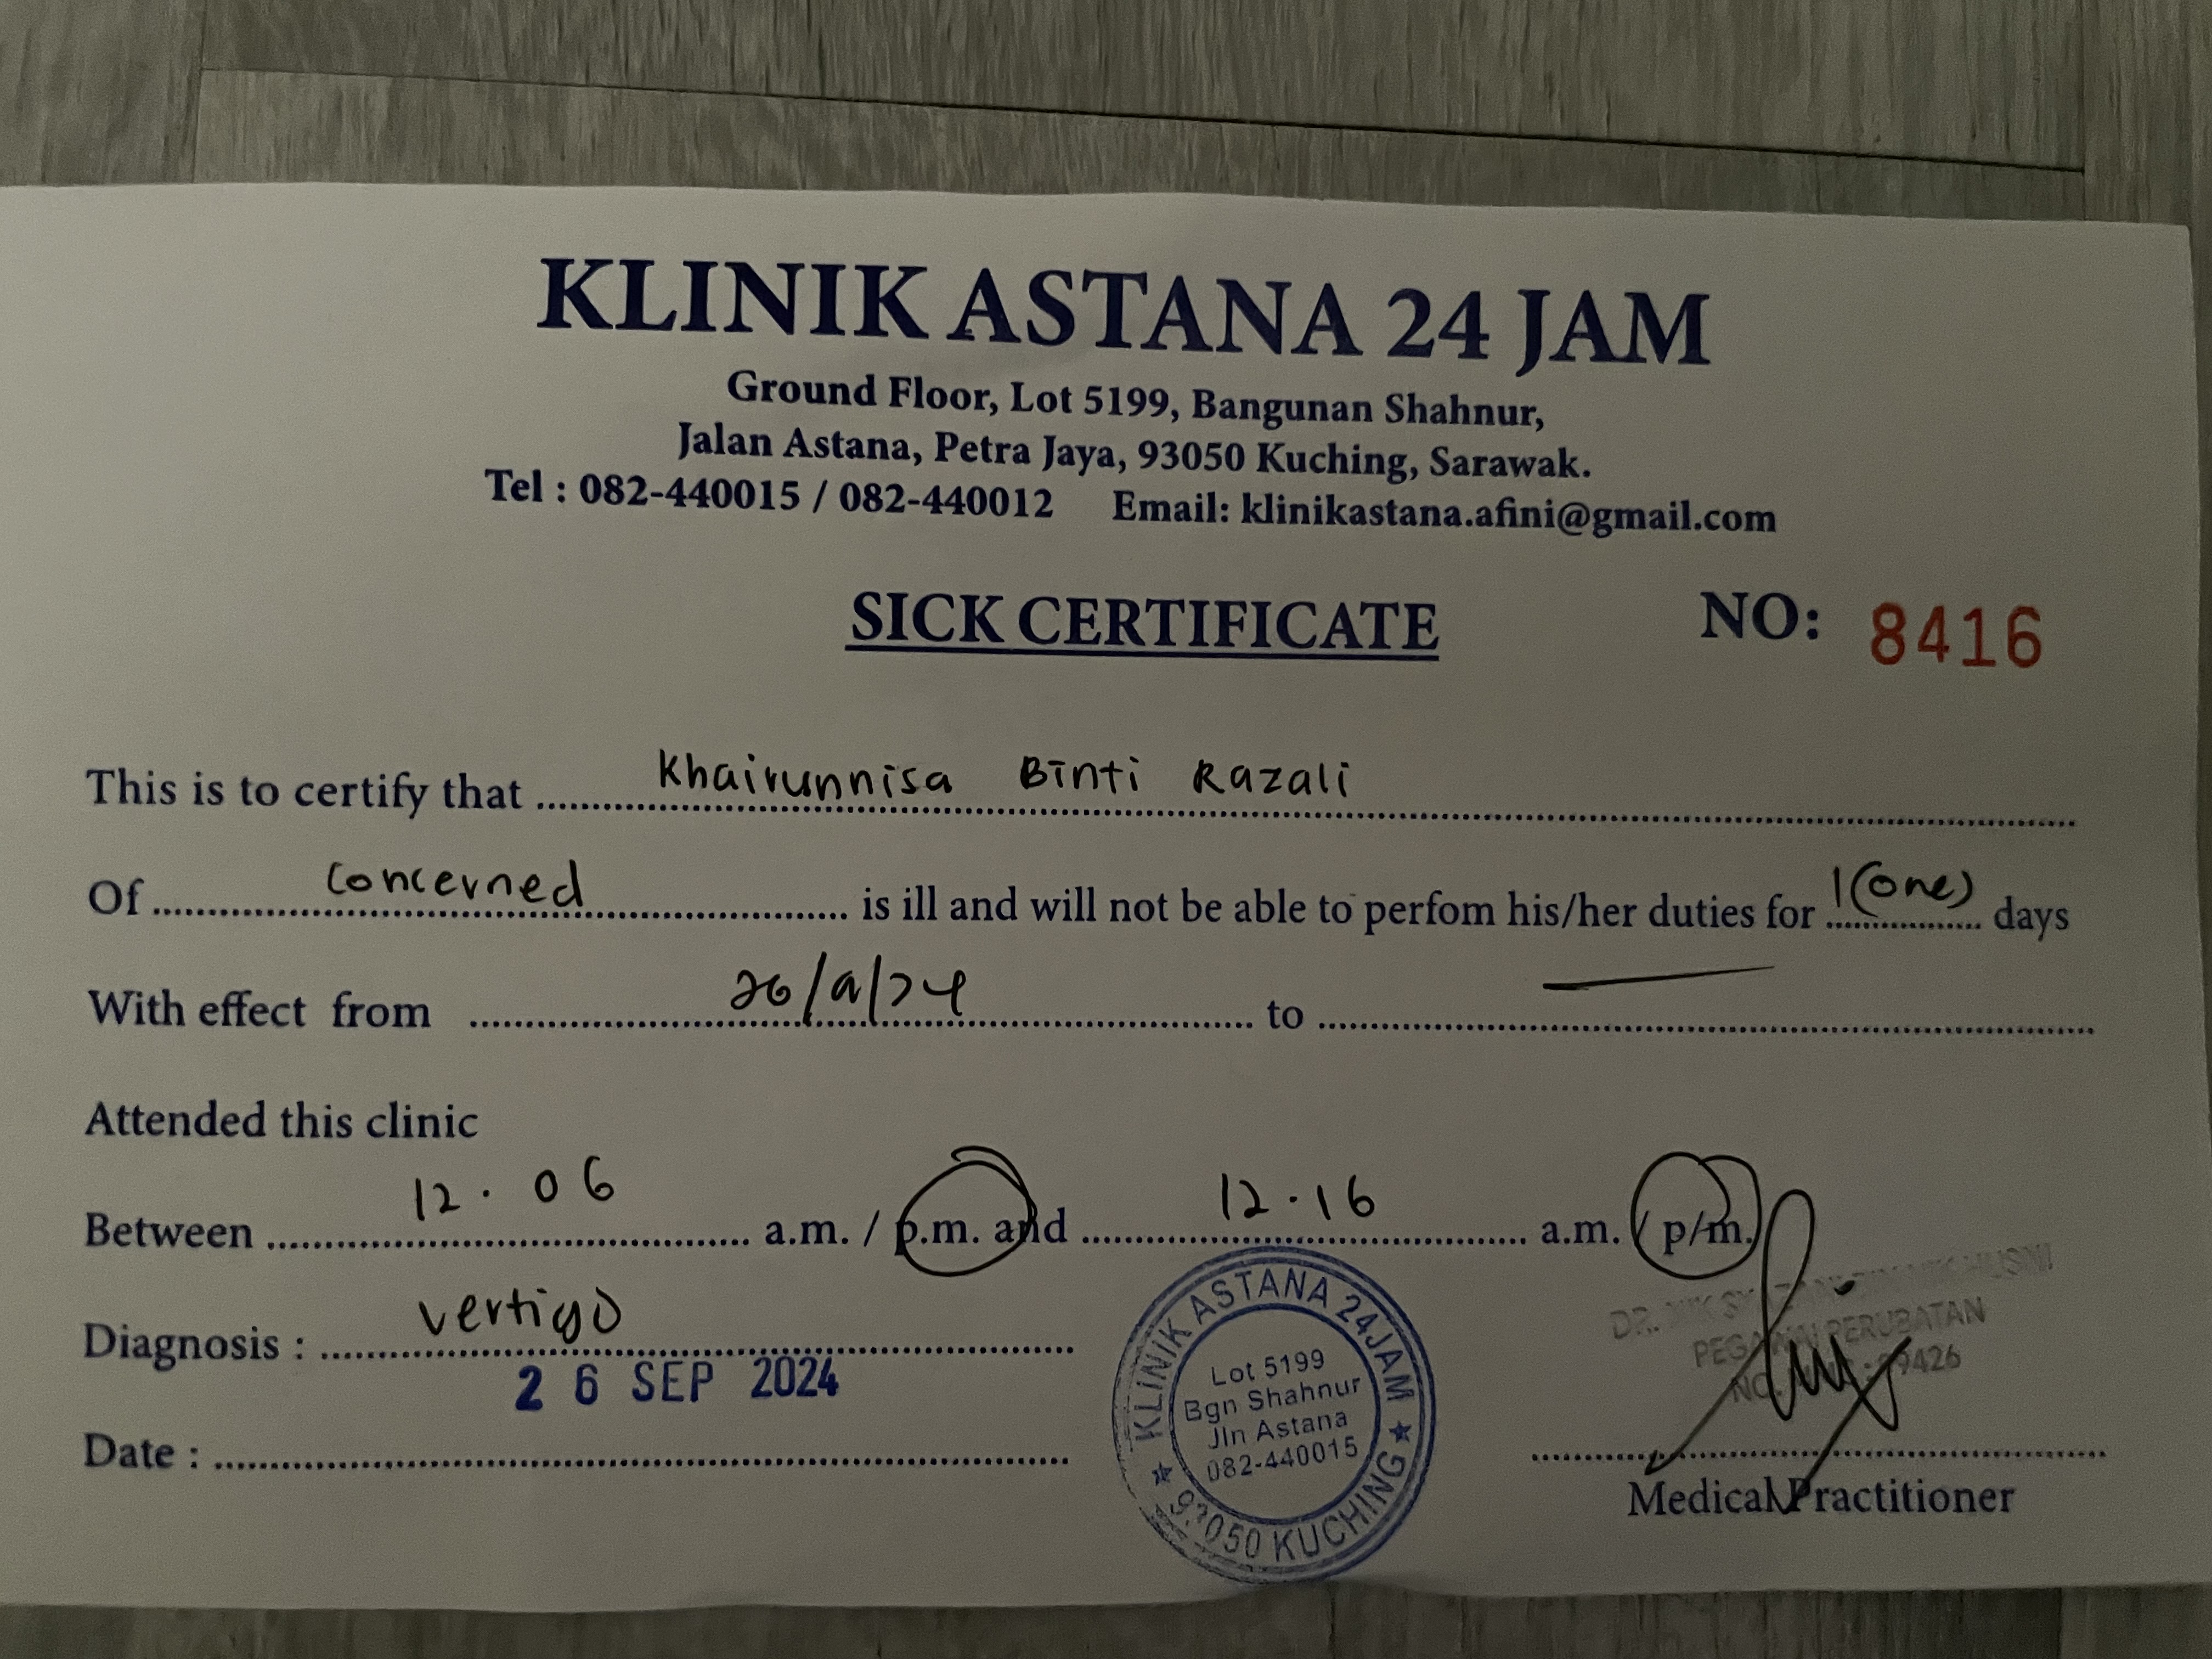 KLINIK ASTANA 24 JAM
Ground Floor, Lot 5199, Bangunan Shahnur,
Jalan Astana, Petra Jaya, 93050 Kuching, Sarawak.
Tel : 082-440015 / 082-440012 Email: klinikastana.afini@gmail.com
SICK CERTIFICATE NO: 8416
This is to certify that Khairunnisa Binti Razali
Of concerned is ill and will not be able to perfom his/her duties for 1(one) days
With effect from 26/9/24 to —
Attended this clinic
Between 12.06 a.m. / p.m. and 12.16 a.m. / p.m.
Diagnosis : vertigo
Date : 26 SEP 2024
KLINIK ASTANA 24JAM
Lot 5199
Bgn Shahnur
Jln Astana
082-440015
93050 KUCHING
DR.
PEGAWAI PERUBATAN
NO.
Medical Practitioner